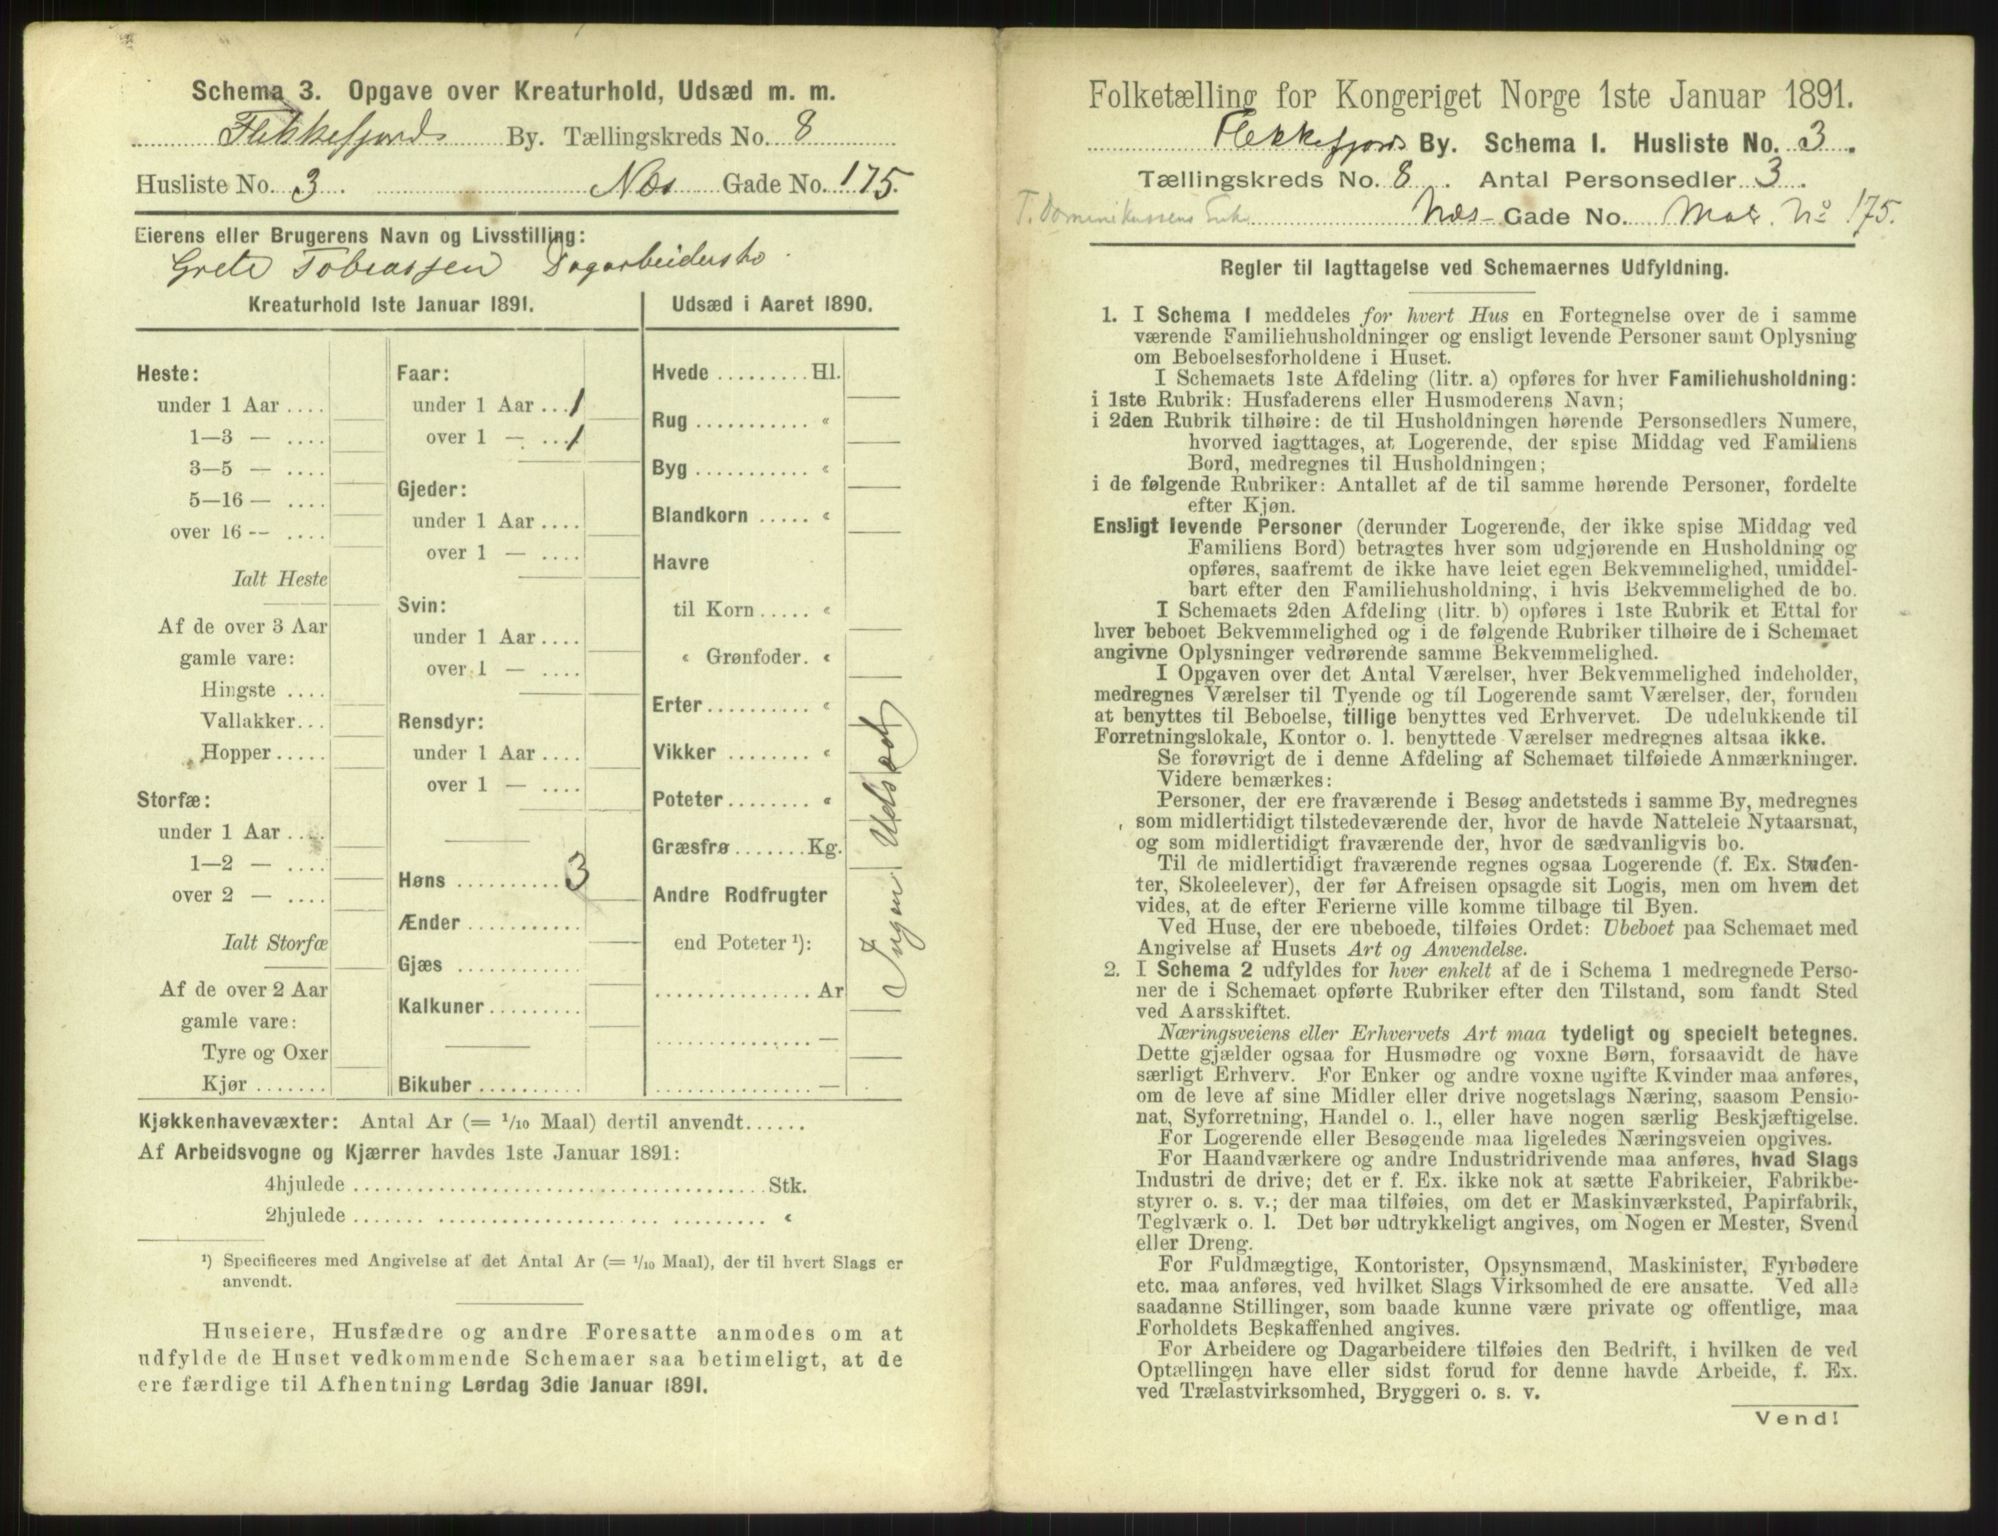 Schema 3. Opgave over Kreaturhold, Udsæd m. m.
Flekkefjords By. Tællingskreds No. 8
Husliste No. 3. Næs Gade No. 175.
Eierens eller Brugerens Navn og Livsstilling:
Grete Tobiassen Dagarbeiderske.
Kreaturhold 1ste Januar 1891.
Heste:
under 1 Aar ....
1—3 — ....
3—5 — ....
5—16 — ....
over 16 -- ....
Ialt Heste
Af de over 3 Aar
gamle vare:
Hingste ....
Vallakker...
Hopper.....
Storfæ:
under 1 Aar ....
1—2 — ....
over 2 — ....
Ialt Storfæ
Af de over 2 Aar
gamle vare:
Tyre og Oxer
Kjør .......
Faar:
under 1 Aar ... 1
over 1 — ... 1
Gjeder:
under 1 Aar ....
over 1 — ....
Svin:
under 1 Aar ....
over 1 — ....
Rensdyr:
under 1 Aar ....
over 1 — ....
Høns .......... 3
Ænder ...........
Gjæs ............
Kalkuner.........
Bikuber ..........
Udsæd i Aaret 1890.
Hvede ......... Hl.
Rug ........... «
Byg ........... «
Blandkorn ..... «
Havre
til Korn ..... «
« Grønfoder. «
Erter.......... «
Vikker ........ «
Poteter........ «
Græsfrø ....... Kg.
Andre Rodfrugter
end Poteter ¹):
............... Ar
............... —
............... —
Ingen Udsæd
Kjøkkenhavevæxter: Antal Ar (= 1/10 Maal) dertil anvendt......
Af Arbeidsvogne og Kjærrer havdes 1ste Januar 1891:
4hjulede ........................................ Stk.
2hjulede ........................................ «
¹) Specificeres med Angivelse af det Antal Ar (= 1/10 Maal), der til hvert Slags er
anvendt.
Huseiere, Husfædre og andre Foresatte anmodes om at
udfylde de Huset vedkommende Schemaer saa betimeligt, at de
ere færdige til Afhentning Lørdag 3die Januar 1891.
Folketælling for Kongeriget Norge 1ste Januar 1891.
Flekkefjords By. Schema I. Husliste No. 3.
Tællingskreds No. 8. Antal Personsedler 3.
T. Dominikussens Enke Næs- Gade No. Mat. No 175.
Regler til Iagttagelse ved Schemaernes Udfyldning.
1. I Schema 1 meddeles for hvert Hus en Fortegnelse over de i samme
værende Familiehusholdninger og ensligt levende Personer samt Oplysning
om Beboelsesforholdene i Huset.
I Schemaets 1ste Afdeling (litr. a) opføres for hver Familiehusholdning:
i 1ste Rubrik: Husfaderens eller Husmoderens Navn;
i 2den Rubrik tilhøire: de til Husholdningen hørende Personsedlers Numere,
hvorved iagttages, at Logerende, der spise Middag ved Familiens
Bord, medregnes til Husholdningen;
i de følgende Rubriker: Antallet af de til samme hørende Personer, fordelte
efter Kjøn.
Ensligt levende Personer (derunder Logerende, der ikke spise Middag ved
Familiens Bord) betragtes hver som udgjørende en Husholdning og
opføres, saafremt de ikke have leiet egen Bekvemmelighed, umiddel-
bart efter den Familiehusholdning, i hvis Bekvemmelighed de bo.
I Schemaets 2den Afdeling (litr. b) opføres i 1ste Rubrik et Ettal for
hver beboet Bekvemmelighed og i de følgende Rubriker tilhøire de i Schemaet
angivne Oplysninger vedrørende samme Bekvemmelighed.
I Opgaven over det Antal Værelser, hver Bekvemmelighed indeholder,
medregnes Værelser til Tyende og til Logerende samt Værelser, der, foruden
at benyttes til Beboelse, tillige benyttes ved Erhvervet. De udelukkende til
Forretningslokale, Kontor o. l. benyttede Værelser medregnes altsaa ikke.
Se forøvrigt de i denne Afdeling af Schemaet tilføiede Anmærkninger.
Videre bemærkes:
Personer, der ere fraværende i Besøg andetsteds i samme By, medregnes
som midlertidigt tilstedeværende der, hvor de havde Natteleie Nytaarsnat,
og som midlertidigt fraværende der, hvor de sædvanligvis bo.
Til de midlertidigt fraværende regnes ogsaa Logerende (f. Ex. Studen-
ter, Skoleelever), der før Afreisen opsagde sit Logis, men om hvem det
vides, at de efter Ferierne ville komme tilbage til Byen.
Ved Huse, der ere ubeboede, tilføies Ordet: Ubeboet paa Schemaet med
Angivelse af Husets Art og Anvendelse.
2. I Schema 2 udfyldes for hver enkelt af de i Schema 1 medregnede Perso-
ner de i Schemaet opførte Rubriker efter den Tilstand, som fandt Sted
ved Aarsskiftet.
Næringsveiens eller Erhvervets Art maa tydeligt og specielt betegnes.
Dette gjælder ogsaa for Husmødre og voxne Børn, forsaavidt de have
særligt Erhverv. For Enker og andre voxne ugifte Kvinder maa anføres,
om de leve af sine Midler eller drive nogetslags Næring, saasom Pensio-
nat, Syforretning, Handel o. l., eller have nogen særlig Beskjæftigelse.
For Logerende eller Besøgende maa ligeledes Næringsveien opgives.
For Haandværkere og andre Industridrivende maa anføres, hvad Slags
Industri de drive; det er f. Ex. ikke nok at sætte Fabrikeier, Fabrikbe-
styrer o. s. v.; der maa tilføies, om det er Maskinværksted, Papirfabrik,
Teglværk o. l. Det bør udtrykkeligt angives, om Nogen er Mester, Svend
eller Dreng.
For Fuldmægtige, Kontorister, Opsynsmænd, Maskinister, Fyrbødere
etc. maa anføres, ved hvilket Slags Virksomhed de ere ansatte. Ved alle
saadanne Stillinger, som baade kunne være private og offentlige, maa
Forholdets Beskaffenhed angives.
For Arbeidere og Dagarbeidere tilføies den Bedrift, i hvilken de ved
Optællingen have eller sidst forud for denne havde Arbeide, f. Ex.
ved Trælastvirksomhed, Bryggeri o. s. v.
Vend!